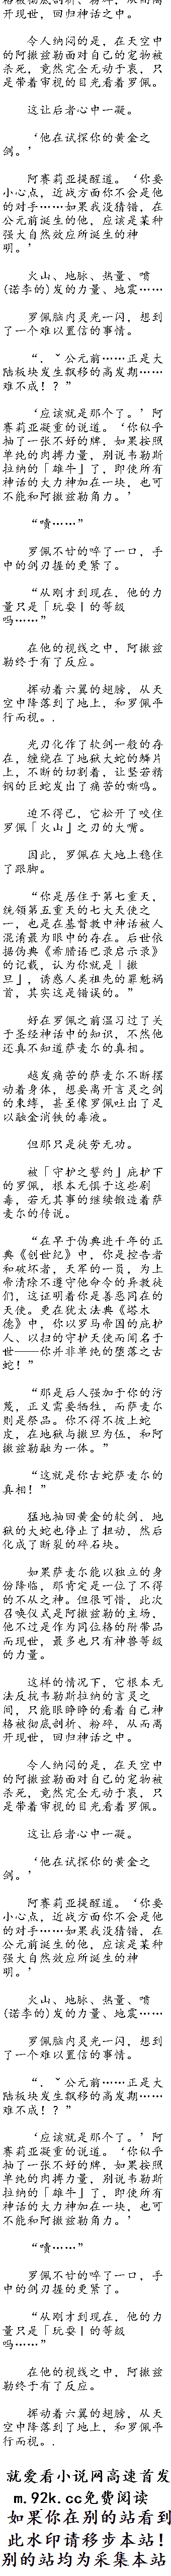 格被彻底剖析、粉碎，从而离
开现世，回归神话之中。
令人纳闷的是，在天空中
的阿撒兹勒面对自己的宠物被
杀死，竟然完全无动于衷，只
是带着审视的目光看着罗佩。
这让后者心中一凝。
‘他在试探你的黄金之
剑。’
阿赛莉亚提醒道。‘你要
小心点，近战方面你不会是他
的对手……如果我没猜错，在
公元前诞生的他，应该是某种
强大自然效应所诞生的神
明。’
火山、地脉、热量、喷
(诺李的)发的力量、地震……
罗佩脑内灵光一闪，想到
了一个难以置信的事情。
“．ˇ公元前……正是大
陆板块发生飘移的高发期……
难不成！？”
‘应该就是那个了。’阿
赛莉亚凝重的说道。‘你似乎
抽了一张不好的牌，如果按照
单纯的肉搏力量，别说韦勒斯
拉纳的「雄牛」了，即使所有
神话的大力神加在一块，也可
不能和阿撒兹勒角力。’
“啧……”
罗佩不甘的啐了一口，手
中的剑刃握的更紧了。
“从刚才到现在，他的力
量只是「玩耍」的等级
吗……”
在他的视线之中，阿撒兹
勒终于有了反应。
挥动着六翼的翅膀，从天
空中降落到了地上，和罗佩平
行而视。．
光刃化作了软剑一般的存
在，缠绕在了地狱大蛇的鳞片
上，不断的切割着，让坚若精
钢的巨蛇发出了痛苦的嘶鸣。
迫不得已，它松开了咬住
罗佩「火山」之刃的大嘴。
因此，罗佩在大地上稳住
了跟脚。
“你是居住于第七重天，
统领第五重天的七大天使之
一，也是在基督教中神话被人
混淆最为眼中的存在。后世依
据伪典《希腊语巴录启示录》
的记载，认为你就是「撒
旦」，诱惑人类祖先的罪魁祸
首，其实这是错误的。”
好在罗佩之前温习过了关
于圣经神话中的知识，不然他
还真不知道萨麦尔的真相。
越发痛苦的萨麦尔不断摆
动着身体，想要离开言灵之剑
的束缚，甚至像罗佩吐出了足
以融金消铁的毒液。
但那只是徒劳无功。
被「守护之誓约」庇护下
的罗佩，根本无惧于这些剧
毒，若无其事的继续锻造着萨
麦尔的传说。
“在早于伪典进千年的正
典《创世纪》中，你是控告者
和破坏者，天军的一员，为上
帝清除不遵守他命令的异教徒
们，这证明着你是善恶同在的
天使。更在犹太法典《塔木
德》中，你以罗马帝国的庇护
人、以扫的守护天使而闻名于
世——你并非单纯的堕落之古
蛇！”
“那是后人强加于你的污
蔑，正义需要牺牲，而萨麦尔
则是祭品。你不得不披上蛇
皮，在地狱与撒旦为伍，和阿
撒兹勒融为一体。”
“这就是你古蛇萨麦尔的
真相！”
猛地抽回黄金的软剑，地
狱的大蛇也停止了扭动，然后
化成了断裂的碎石块。
如果萨麦尔能以独立的身
份降临，那肯定是一位了不得
的不从之神。但很可惜，此次
召唤仪式是阿撒兹勒的主场，
他不过是作为同位格的附带品
而现世，最多也只有神兽等级
的力量。
这样的情况下，它根本无
法反抗韦勒斯拉纳的言灵之
剑，只能眼睁睁的看着自己神
格被彻底剖析、粉碎，从而离
开现世，回归神话之中。
令人纳闷的是，在天空中
的阿撒兹勒面对自己的宠物被
杀死，竟然完全无动于衷，只
是带着审视的目光看着罗佩。
这让后者心中一凝。
‘他在试探你的黄金之
剑。’
阿赛莉亚提醒道。‘你要
小心点，近战方面你不会是他
的对手……如果我没猜错，在
公元前诞生的他，应该是某种
强大自然效应所诞生的神
明。’
火山、地脉、热量、喷
(诺李的)发的力量、地震……
罗佩脑内灵光一闪，想到
了一个难以置信的事情。
“．ˇ公元前……正是大
陆板块发生飘移的高发期……
难不成！？”
‘应该就是那个了。’阿
赛莉亚凝重的说道。‘你似乎
抽了一张不好的牌，如果按照
单纯的肉搏力量，别说韦勒斯
拉纳的「雄牛」了，即使所有
神话的大力神加在一块，也可
不能和阿撒兹勒角力。’
“啧……”
罗佩不甘的啐了一口，手
中的剑刃握的更紧了。
“从刚才到现在，他的力
量只是「玩耍」的等级
吗……”
在他的视线之中，阿撒兹
勒终于有了反应。
挥动着六翼的翅膀，从天
空中降落到了地上，和罗佩平
行而视。．
就爱看小说网高速首发
m.92k.cc免费阅读
如果你在别的站看到
此水印请移步本站！
别的站均为采集本站